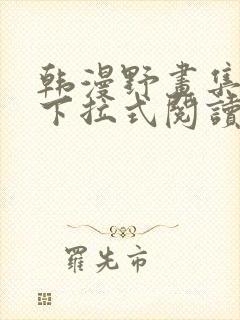 韩漫野畫集
下拉式閱讀
羅先市